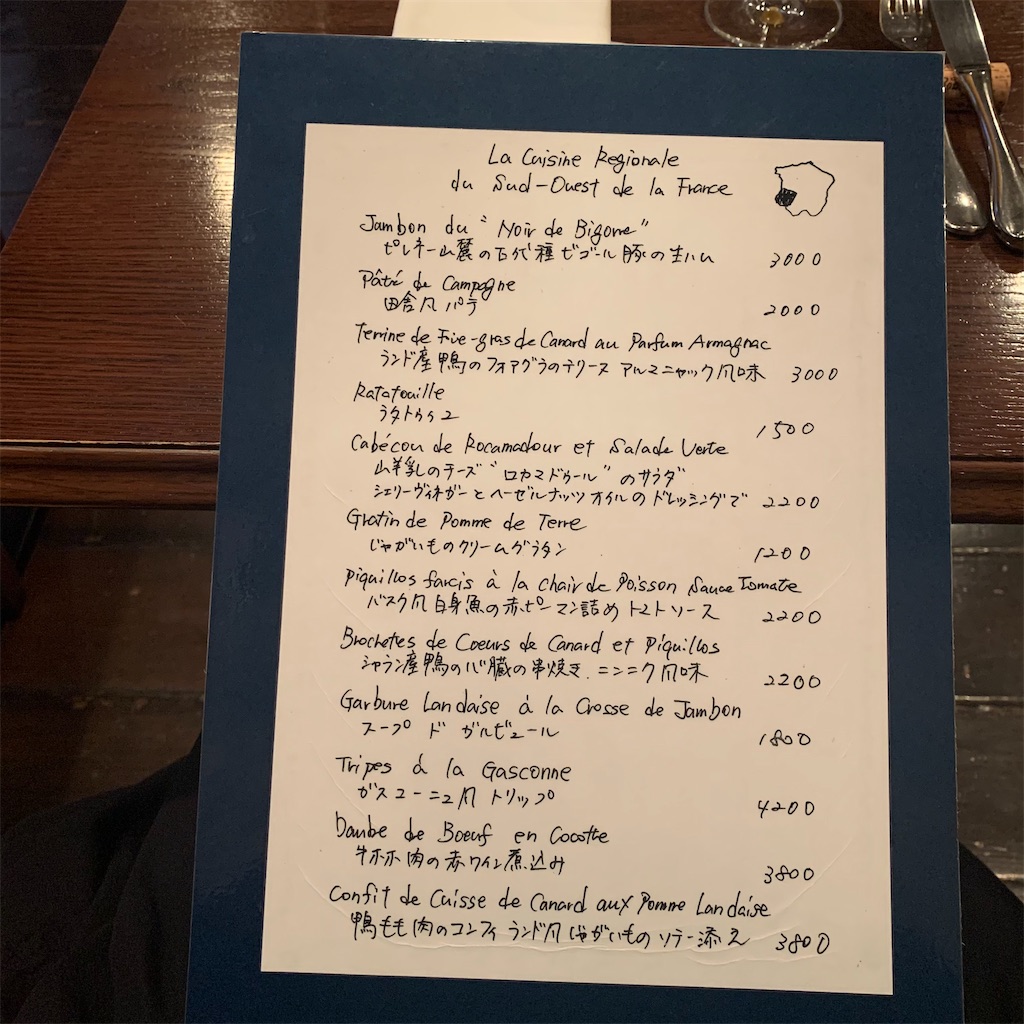 La Cuisine Regionale
du Sud-Ouest de la France
Jambon du "Noir de Bigorre"
ピレネー山麓の古代種ビゴール豚の生ハム 3000
Pâté de Campagne
田舎風パテ 2000
Terrine de Foie-gras de Canard au Parfum Armagnac
ランド産鴨のフォアグラのテリーヌ アルマニャック風味 3000
Ratatouille
ラタトゥイユ 1500
Cabécou de Rocamadour et Salade Verte
山羊乳のチーズ"ロカマドゥール"のサラダ
シェリーヴィネガーとヘーゼルナッツオイルのドレッシングで 2200
Gratin de Pomme de Terre
じゃがいものクリームグラタン 1200
Piquillos farcis à la chair de Poisson Sauce Tomate
バスク風白身魚の赤ピーマン詰め トマトソース 2200
Brochetes de Coeurs de Canard et Piquillos
シャラン産鴨の心臓の串焼き ニンニク風味 2200
Garbure Landaise à la Crosse de Jambon
スープ ド ガルビュール 1800
Tripes à la Gasconne
ガスコーニュ風 トリップ 4200
Daube de Boeuf en Cocotte
牛ホホ肉の赤ワイン煮込み 3800
Confit de Cuisse de Canard aux Pomme Landaise
鴨もも肉のコンフィ ランド風じゃがいものソテー添え 3800